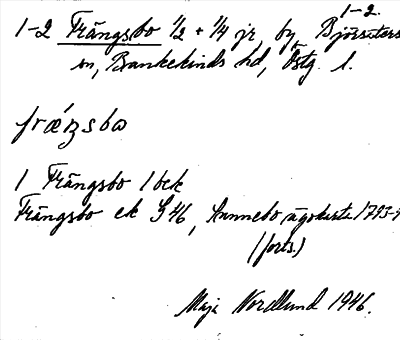 1-2.
1-2 Frängsbo 1/2 + 1/4 jr, by, Björsäters
sn, Bankekinds hd, Östg. l.
fræ̀ŋsbo
1 Frängsbo 1 bek
Frängsbo ek G 46, Annebo ägokarta 1793-
(forts.)
Maja Nordlund 1946.